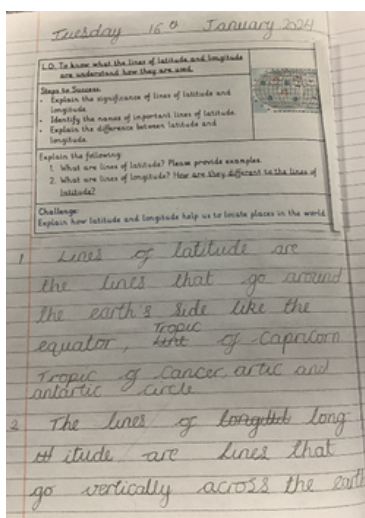 Tuesday 16th January 2024
L.O. To know what the lines of latitude and longitude
are understand how they are used.
Steps to Success:
• Explain the significance of lines of latitude and
longitude.
• Identify the names of important lines of latitude.
• Explain the difference between latitude and
longitude.
Explain the following:
1. What are lines of latitude? Please provide examples.
2. What are lines of longitude? How are they different to the lines of
latitude?
Challenge:
Explain how latitude and longitude help us to locate places in the world
1 Lines of latitude are
the lines that go around
the earth's side like the
equator, Tropic of Capricorn
Tropic of Cancer, artic and
antartic circle
2 The lines of long
itude are lines that
go vertically across the earth